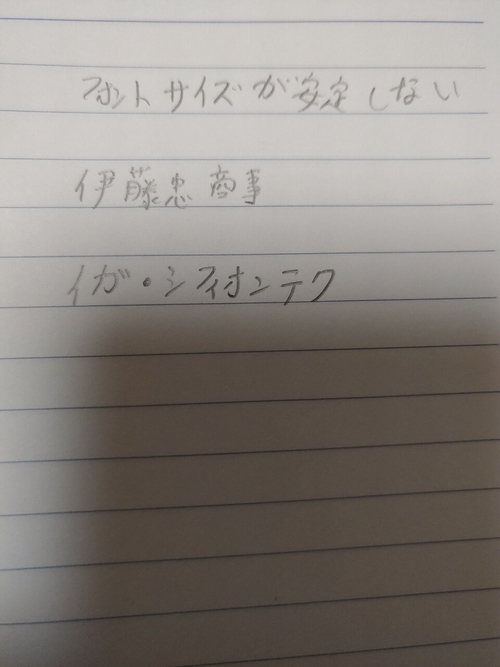 フォントサイズが安定しない
伊藤忠商事
イガ・シフィオンテク